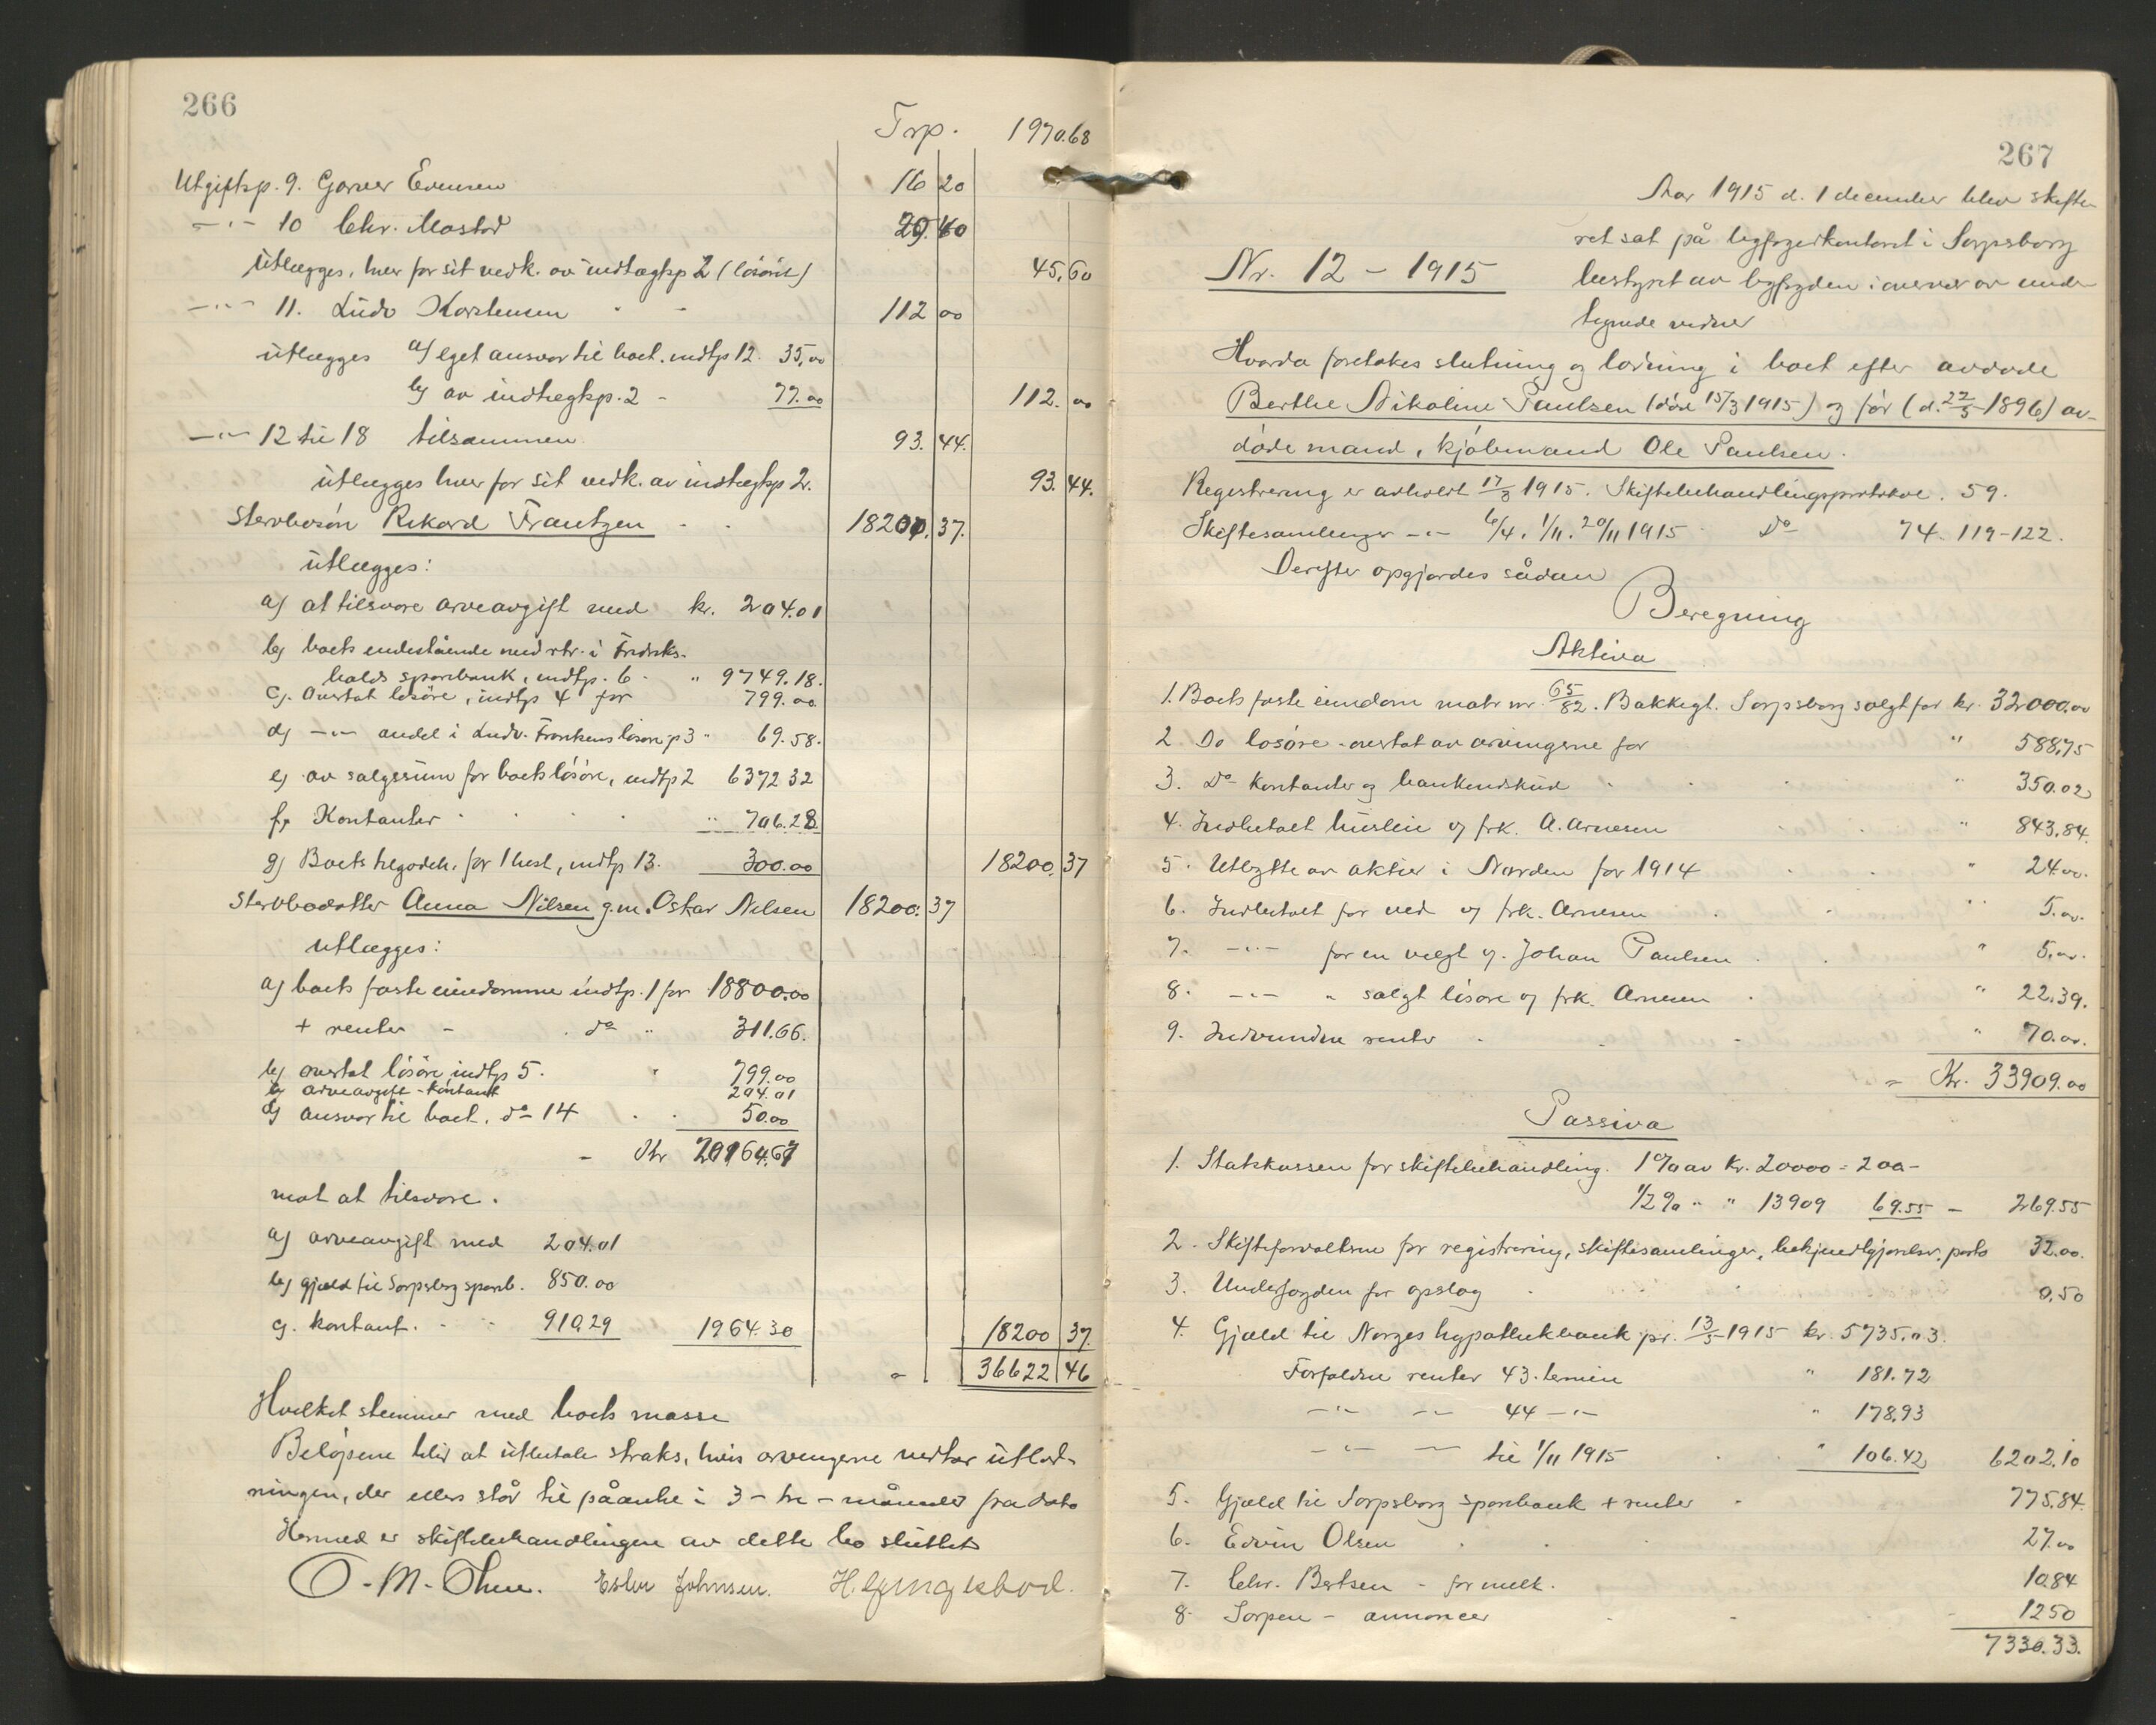 266
Trp. 1970.68
Utgiftsp. 9. Garver Evensen 16 20
—"— 10 Chr. Mostad 29.40
utlægges, hver for sit vedk. av indtægtsp 2 (løsøre) 45,60
—"— 11. Ludv Karstensen 112 00
utlægges a) eget ansvar til boet. indtp 12. 35,00
b) av indtægtsp. 2 - 77.00 112.00
—"— 12 til 18 tilsammen 93.44.
utlægges hver for sit vedk. av indtægtsp 2. 93.44.
Stervbosøn Rikard Frantzen 18200.37.
utlægges:
a) at tilsvare arveavgift med kr. 204.01
b) boets indestående med rtr. i Fredriks-
halds sparebank, indtp. 6 - " 9749.18.
c). Overtat løsøre, indtp 4 for 799.00
d) —"— andel i Ludv. Frantzens løsøre p 3 " 69.58.
e) av salgssum for boets løsøre, indtp 2 6372 32
f, Kontanter " 706.28
g) Boets tilgodeh. for 1 hest, indtp 13. 300.00 18200,37
Stervbodatter Anna Nilsen g.m. Oskar Nilsen 18200.37
utlægges:
a) boets faste eiendomme indtp. 1 for 18800.00
+ renter - do " 311.66.
b) overtat løsøre indtp 5. " 799.00
c) arveavgift - kontant 204.01
d) ansvar til boet. do 14 50.00
- Kr 20164.67
mot at tilsvare.
a) arveavgift med 204.01
b) gjæld til Sarpsborg spareb. 850.00
c). kontant. 910.29 1964.30 18200 37.
- 36622 46
Hvilket stemmer med boets masse
Beløpene blir at utbetale straks, hvis arvingerne vedtar utlod-
ningen, der ellers står til påanke i 3 - tre - måneder fra dato
Hermed er skiftebehandlingen av dette bo sluttet
O. M. Thue. Ester Johnsen.
267
Aar 1915 d. 1 december blev skifte-
ret sat på byfogedkontoret i Sarpsborg
bestyret av byfogden i overvær av under-
tegnede vidner
Nr. 12 - 1915
Hvorda foretokes slutning og lodning i boet efter avdøde
Berthe Nikoline Paulsen (død 15/3 1915) og før (d. 22/5 1896) av-
døde mand, kjøbmand Ole Paulsen.
Registrering er avholdt 17/3 1915. Skiftebehandlingsprotokol. 59.
Skiftesamlinger -"- 6/4. 1/11. 20/11 1915 Do 74. 119-122.
Derefter opgjordes sådan
Beregning
Aktiva
1. Boets faste eiendom matr nr. 65/82. Bakkegt. Sarpsborg solgt for kr. 32000.00
2. Do løsøre - overtat av arvingerne for " 588,75
3. Do kontanter og bankindskud " 350.02
4. Indbetalt husleie v/ frk. A. Arnesen " 843,84.
5. Utbytte av aktier i Norden for 1914 " 24.00.
6. Indbetalt for ved v/ frk. Arnesen " 5.00.
7. -"- for en vegt v/. Johan Paulsen " 5.00.
8. -"- " solgt løsøre v/ frk. Arnesen " 22.39.
9. Indvundne renter " 70.00.
- Kr. 33909.00
Passiva
1. Statskassen for skiftebehandling. 1 % av kr. 20000 = 200 -
1/2 % " " 13909 69.55 - 269.55
2. Skifteforvalteren for registrering, skiftesamlinger, bekjendtgjørelser, porto 32.00.
3. Underfogden for opslag 0,50
4. Gjæld til Norges hypothekbank pr. 13/5 1915 kr. 5735.03.
Forfaldne renter 43. termin " 181.72
-"- -"- 44 -"- " 178,93
-"- -"- til 1/11 1915 " 106.42 6202.10
5. Gjæld til Sarpsborg sparebank + renter 775.84.
6. Edvin Olsen 27.00
7. Chr. Bertsen - for melk. 10.84
8. Sarpen - annoncer 12 50
7330.33.